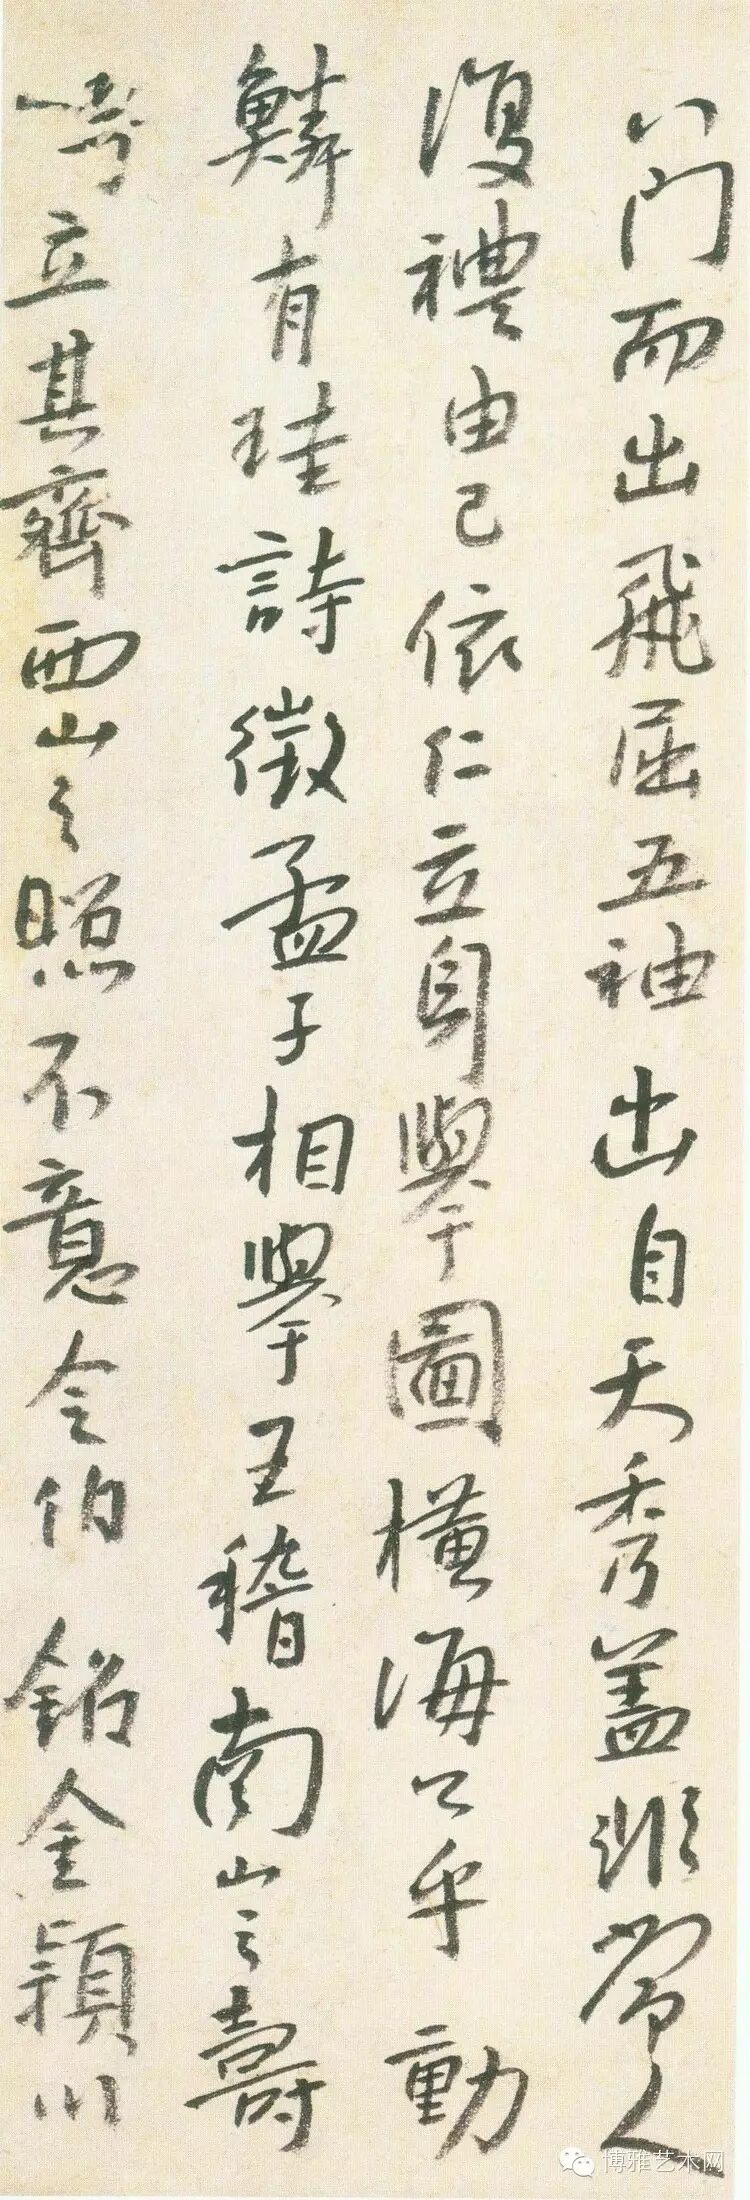 八門而出飛屈五神出自天秀盖非常人
復禮由己依仁立身舉圖橫海公乎動
鱗有珪詩徵孟子相舉王稽南山之壽
立其齊西山之照不意令伯銘金潁川
博雅艺术网